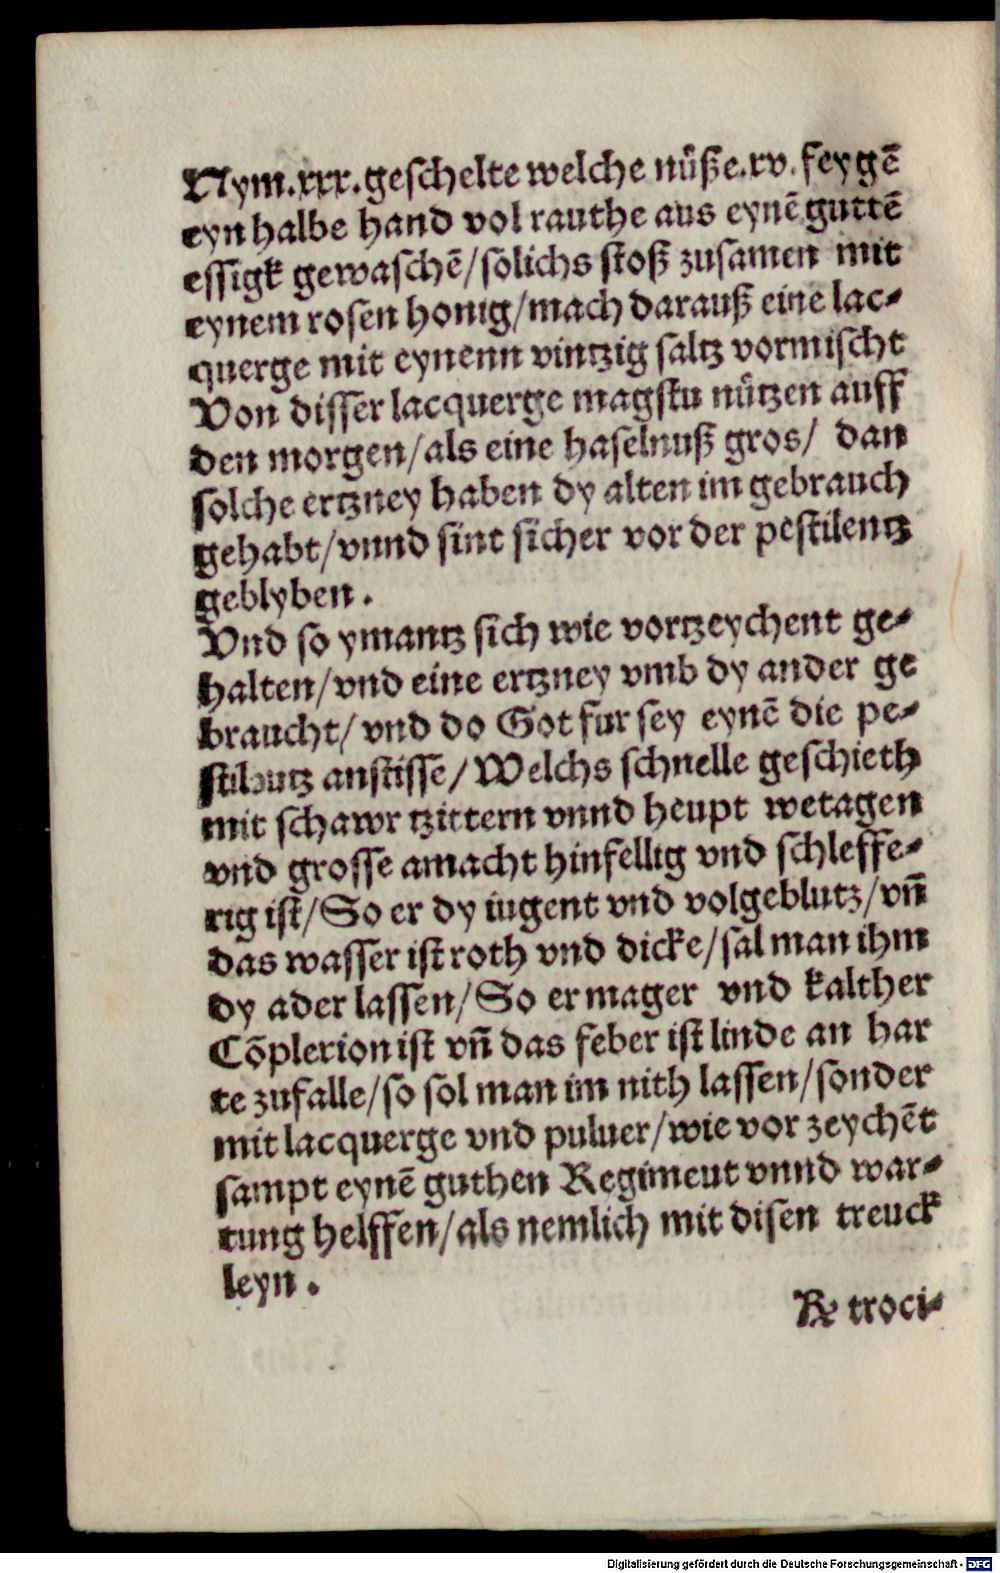 Nym.xxx.geschelte welche nüße.xv.feygē
eyn halbe hand vol rauthe aus eynē guttē
essigk gewaschē/solichs stoß zusamen mit
eynem rosen honig/mach darauß eine lac⸗
querge mit eynenn vintzig saltz vormischt
Von disser lacquerge magstu nützen auff
den morgen/als eine haselnuß gros/ dan
solche ertzney haben dy alten im gebrauch
gehabt/vnnd sint sicher vor der pestilentz
geblyben.
Vnd so ymantz sich wie vortzeychent ge⸗
halten/vnd eine ertzney vmb dy ander ge
braucht/ vnd do Got fur sey eynē die pe⸗
stilentz anstisse/Welchs schnelle geschieth
mit schawr tzittern vnnd heupt wetagen
vnd grosse amacht hinfellig vnd schleffe⸗
rig ist/So er dy iugent vnd volgeblutz/vñ
das wasser ist roth vnd dicke/sal man ihm
dy ader lassen/So er mager vnd kalther
Cōplexion ist vñ das feber ist linde an har
te zufalle/so sol man im nith lassen/sonder
mit lacquerge vnd puluer/wie vor zeychēt
sampt eynē guthen Regiment vnnd war⸗
tung helffen/als nemlich mit disen trenck
leyn.
℞ troci⸗
Digitalisierung gefördert durch die Deutsche Forschungsgemeinschaft - DFG